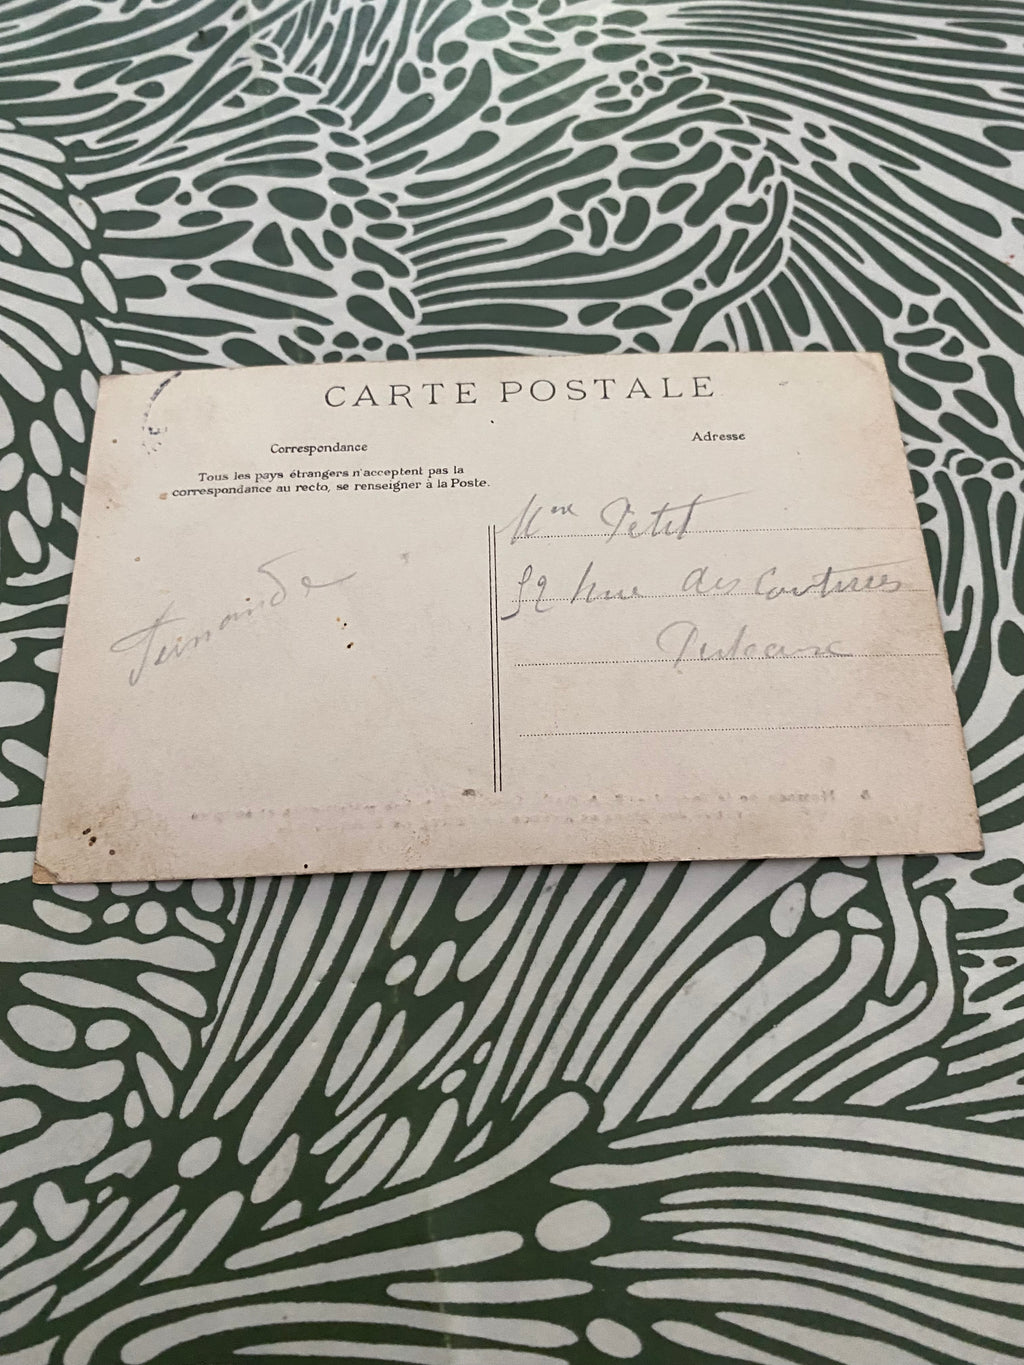 CARTE POSTALE
Correspondance
Tous les pays étrangers n'acceptent pas la
correspondance au recto, se renseigner à la Poste.
Fernande
Adresse
Mme Petit
52 Rue des Coutures
Puteaux